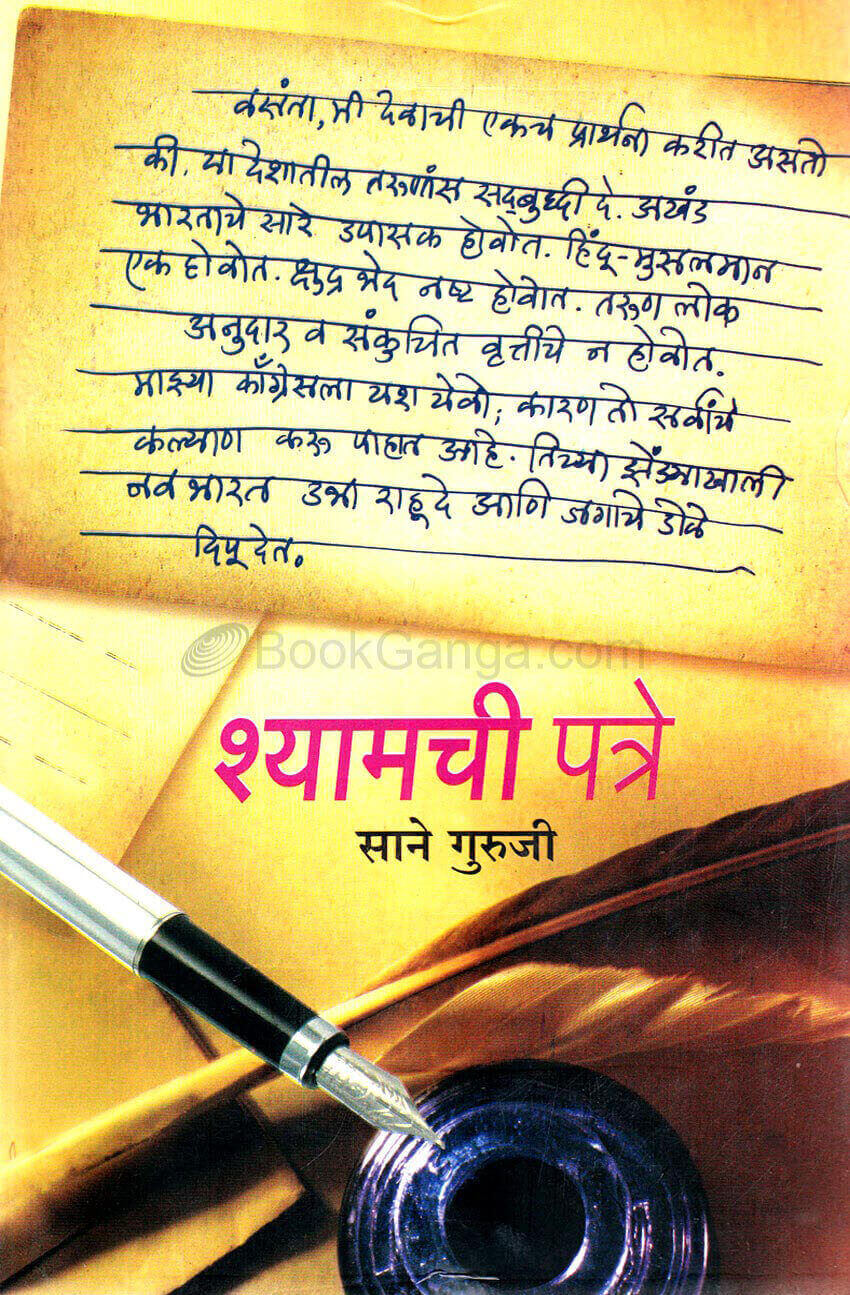 वसंता, मी देवाची एकच प्रार्थना करीत असतो
की, या देशातील तरुणांस सद्‌बुद्धी दे. अखंड
भारताचे सारे उपासक होवोत. हिंदू-मुसलमान
एक होवोत. क्षुद्र भेद नष्ट होवोत. तरुण लोक
अनुदार व संकुचित वृत्तीचे न होवोत.
माझ्या काँग्रेसला यश येवो; कारण ती सर्वांचे
कल्याण करू पाहात आहे. तिच्या झेंड्याखाली
नव भारत उभा राहू दे आणि जगाचे डोळे
दिपू देत.
BookGanga.com
श्यामची पत्रे
साने गुरुजी